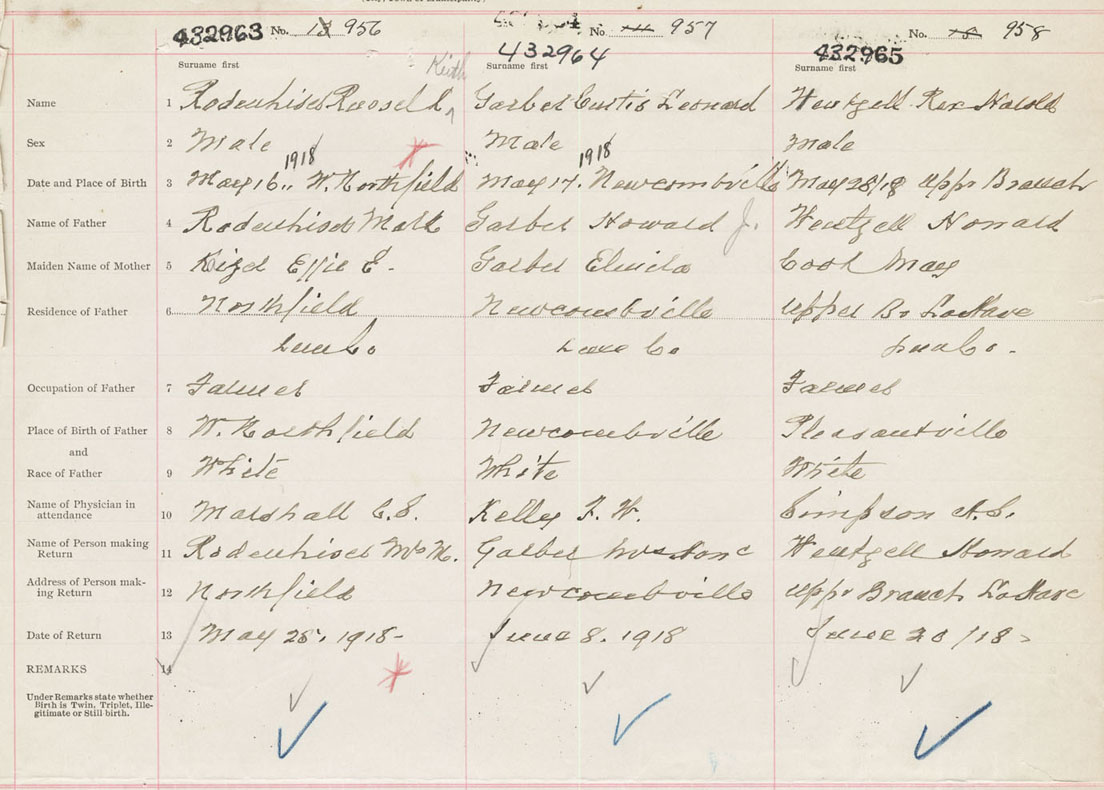 432963 No. 13 956
432964 No. 14 957
432965 No. 15 958
Surname first Keith Surname first Surname first
Name 1 Rodenhiser Russel Garber Curtis Leonard Wentzell Rex Harold
Sex 2 Male Male Male
1918 1918
Date and Place of Birth 3 May 16,, W. Northfield May 17. Newcombville May 28/18 Uppr Branch
Name of Father 4 Rodenhiser Mark Garber Howard J. Wentzell Howard
Maiden Name of Mother 5 Keizer Effie E. Garber Elvida Cook May
Residence of Father 6 Northfield Newcombville Upper Br LaHave
Lun Co Lun Co Lun Co.
Occupation of Father 7 Farmer Farmer Farmer
Place of Birth of Father 8 W. Northfield Newcombville Pleasantville
and
Race of Father 9 White White White
Name of Physician in
attendance 10 Marshall C.S. Kelley F. W. Simpson A.C.
Name of Person making
Return 11 Rodenhiser Mrs M. Garber Wentzell Howard
Address of Person mak-
ing Return 12 Northfield Newcombville Uppr Branch LaHave
Date of Return 13 May 28, 1918- June 8. 1918 June 20/18-
REMARKS 14
Under Remarks state whether
Birth is Twin, Triplet, Ille-
gitimate or Still birth.